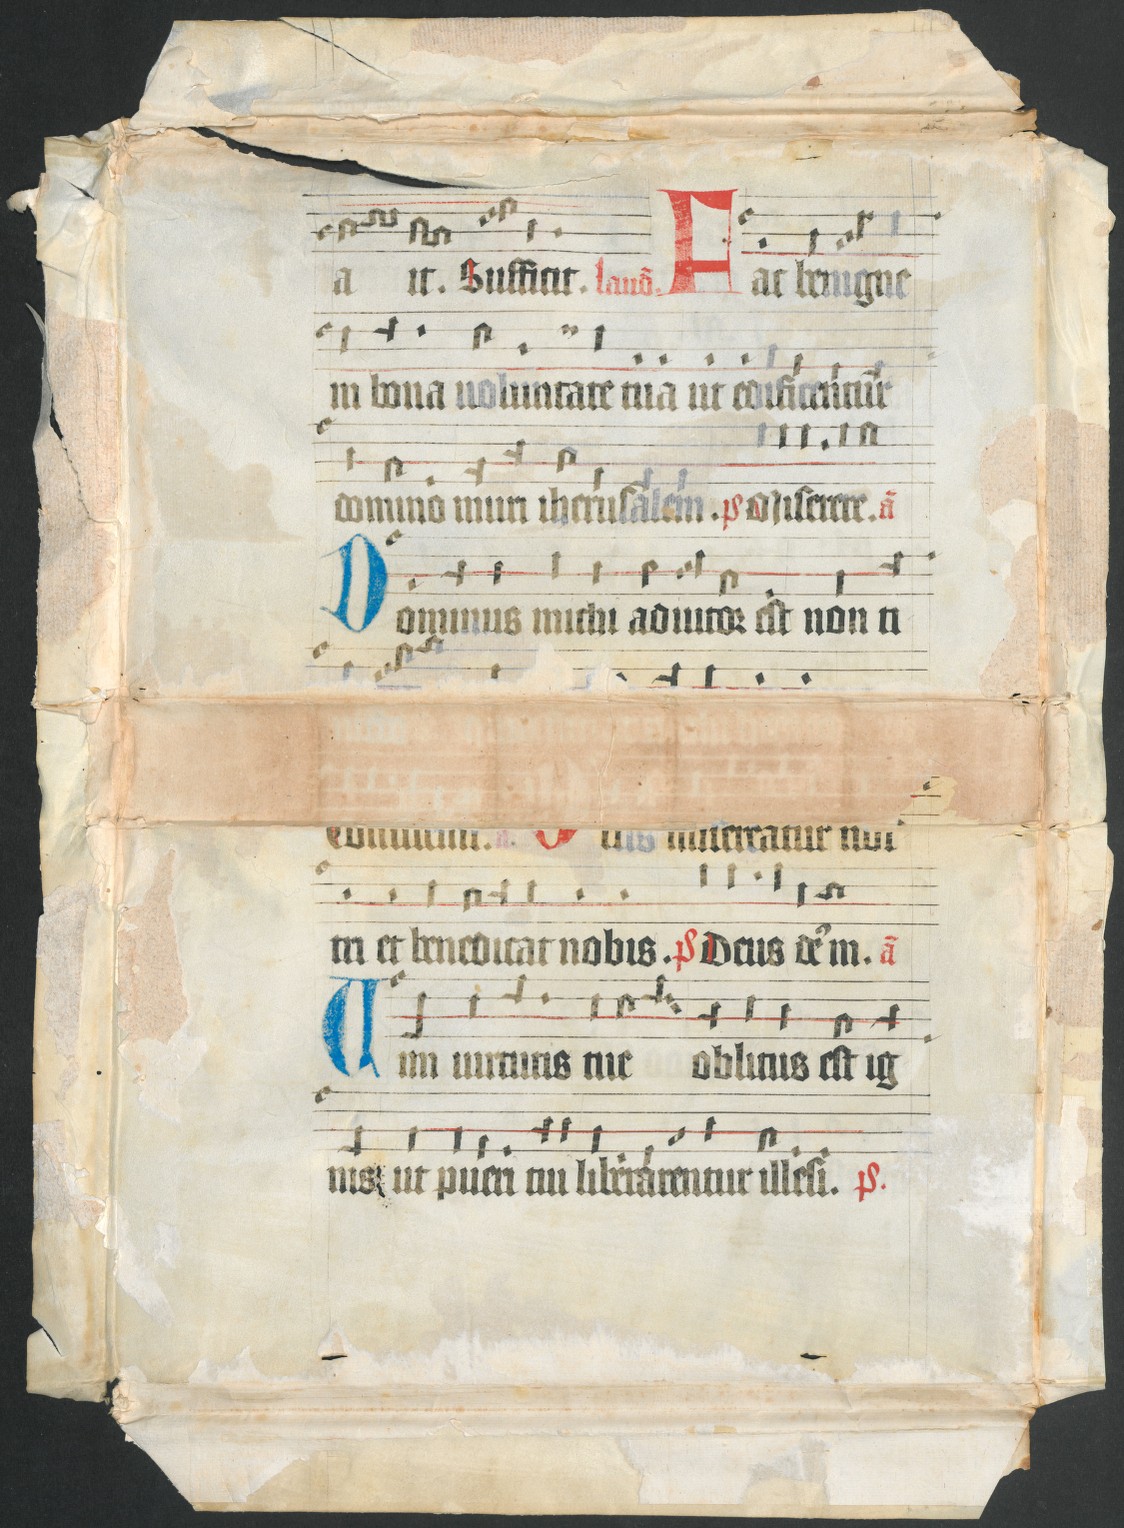 a it. Sufficit. laud̄. Fac benigne
in bona uoluntate tua ut edificentur
domine muri iherusalem. ps Miserere. an̄
Dominus michi adiutor est non ti
Deus misereatur nos
tri et benedicat nobis. ps Deus de᷒ m. an̄
Vim uirtutis sue oblitus est ig
nis ut pueri tui liberarentur illesi. ps.